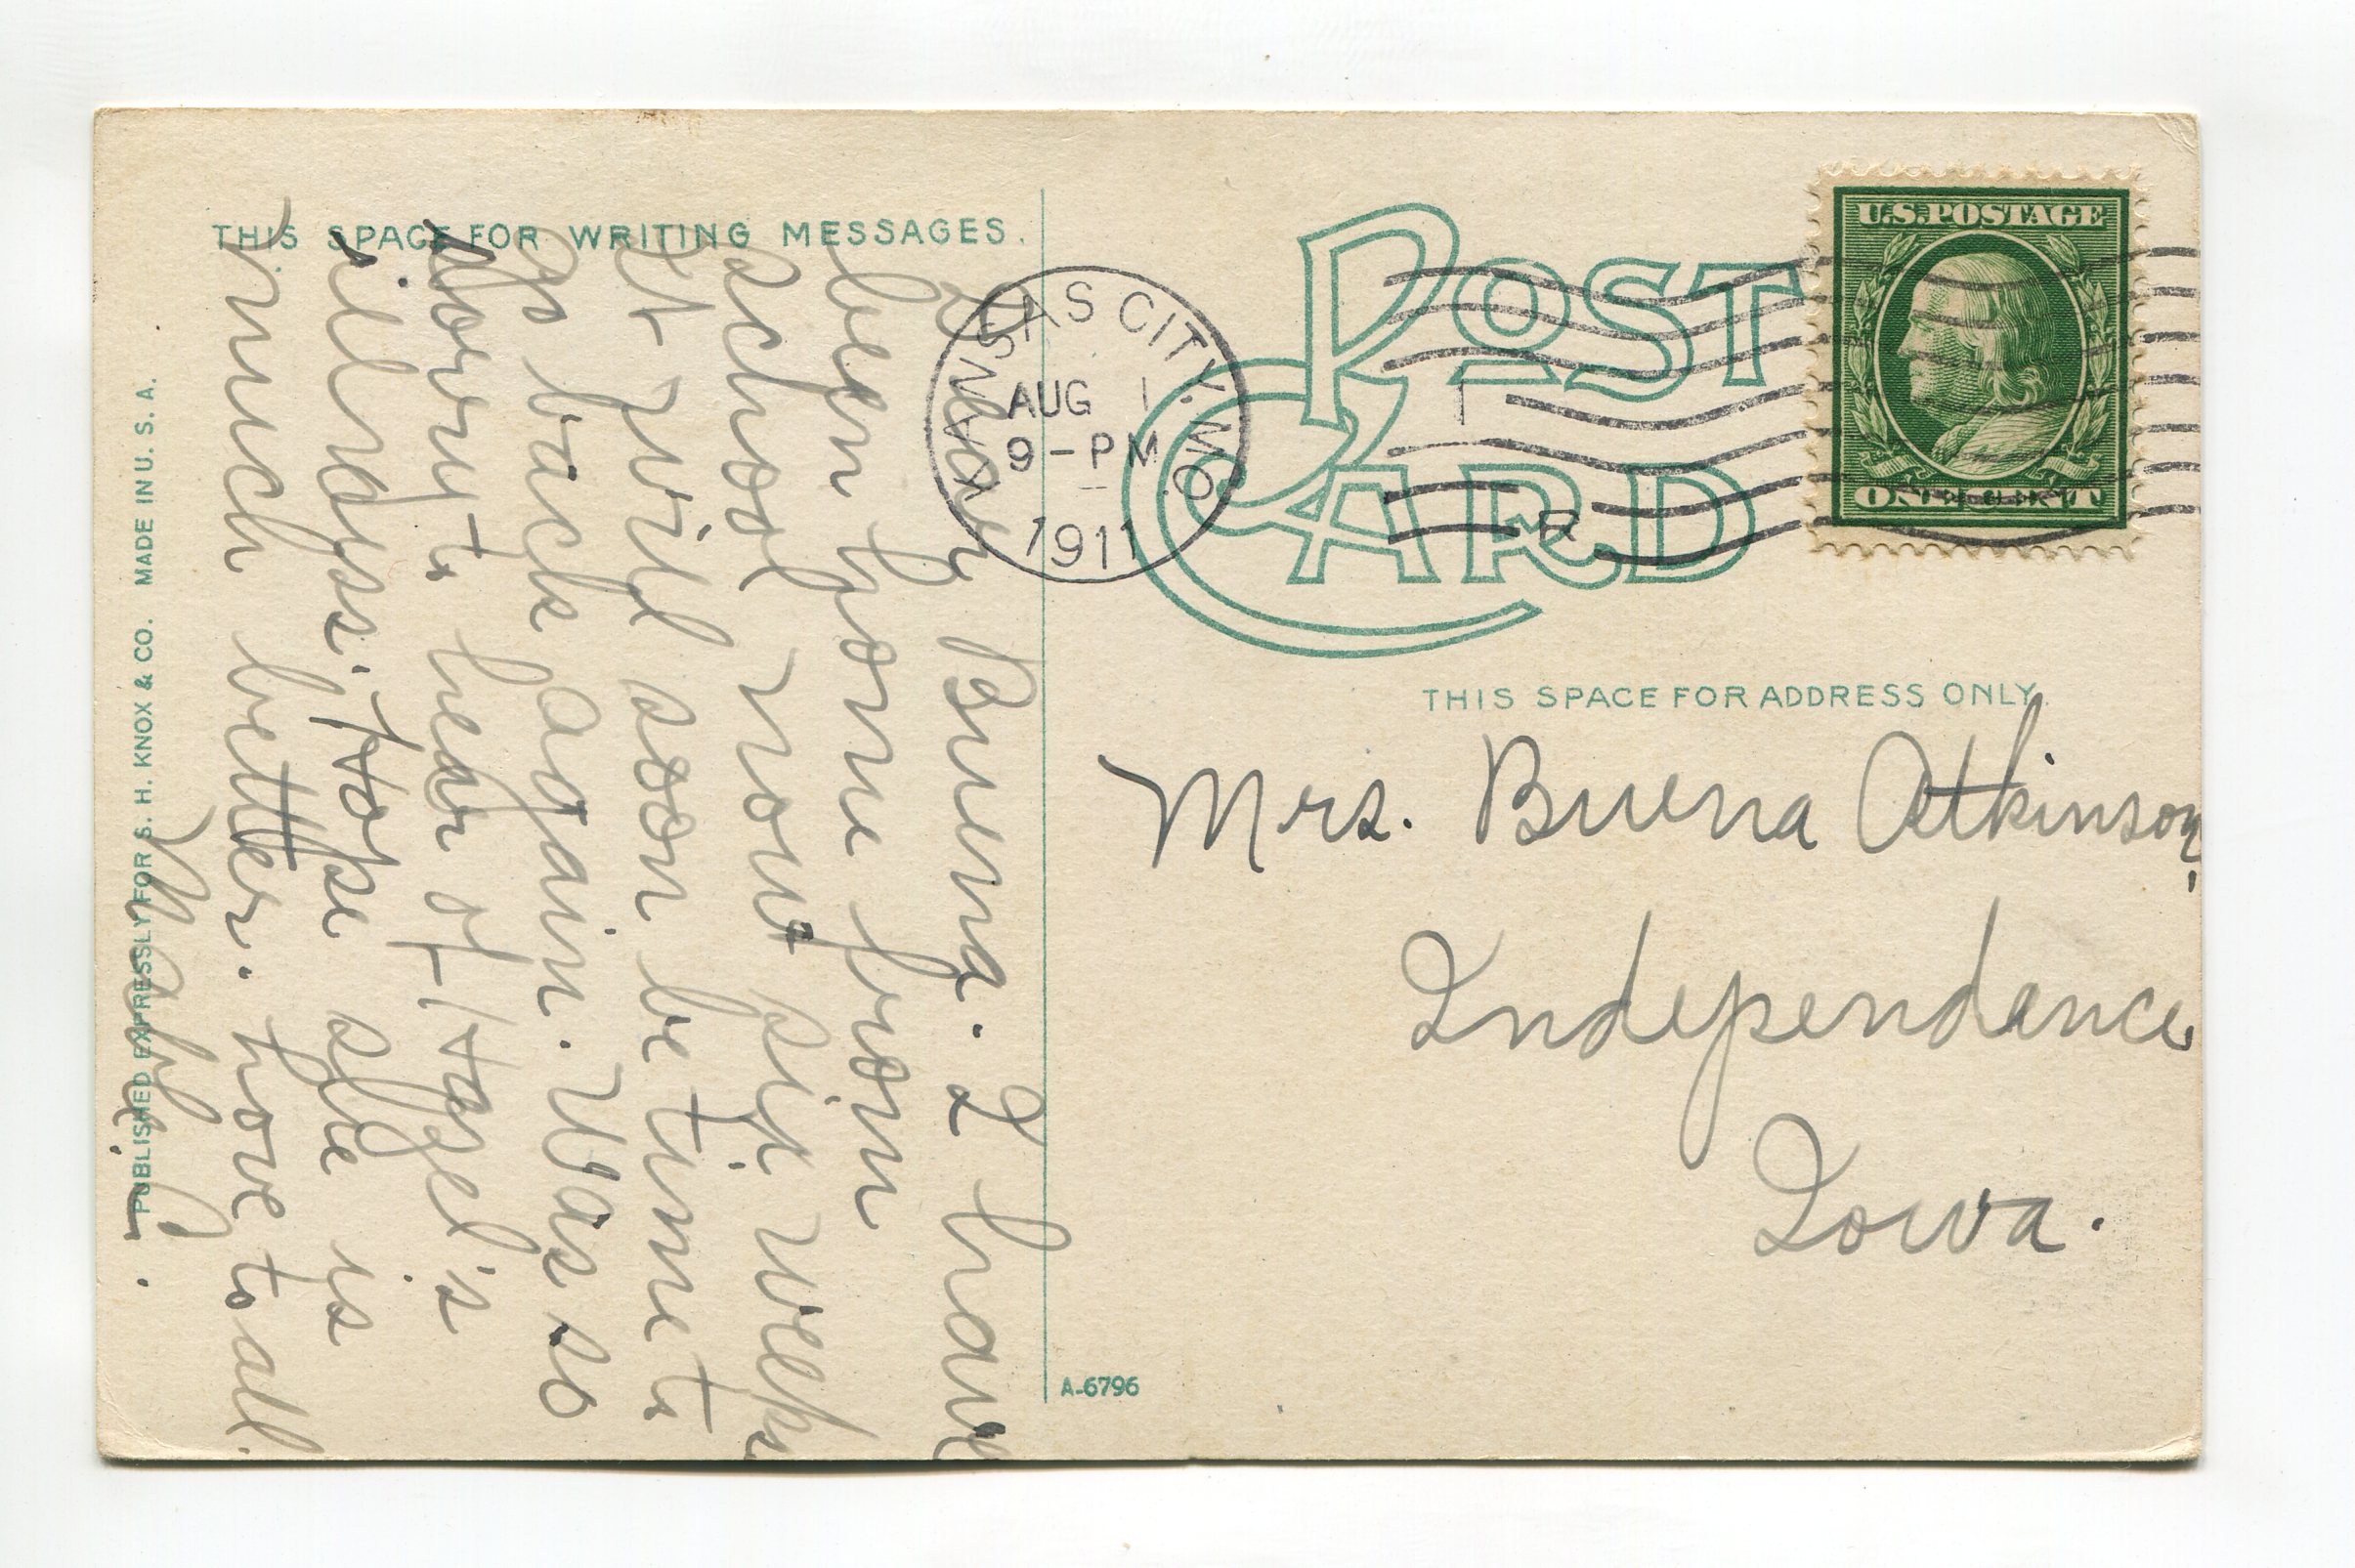 THIS SPACE FOR WRITING MESSAGES.
Dear Buena. I have
been gone from
school now six weeks
It will soon be time to
go back again. Was so
sorry to hear of Hazel's
illness. Hope she is
much better. Love to all.
Mabel J.
PUBLISHED EXPRESSLY FOR S. H. KNOX & CO. MADE IN U. S. A.
POST
CARD
KANSAS CITY, MO.
AUG 1
9-PM
1911
1
R
U.S.POSTAGE
ONE CENT
THIS SPACE FOR ADDRESS ONLY.
Mrs. Buena Atkinson,
Independence,
Iowa.
A-6796